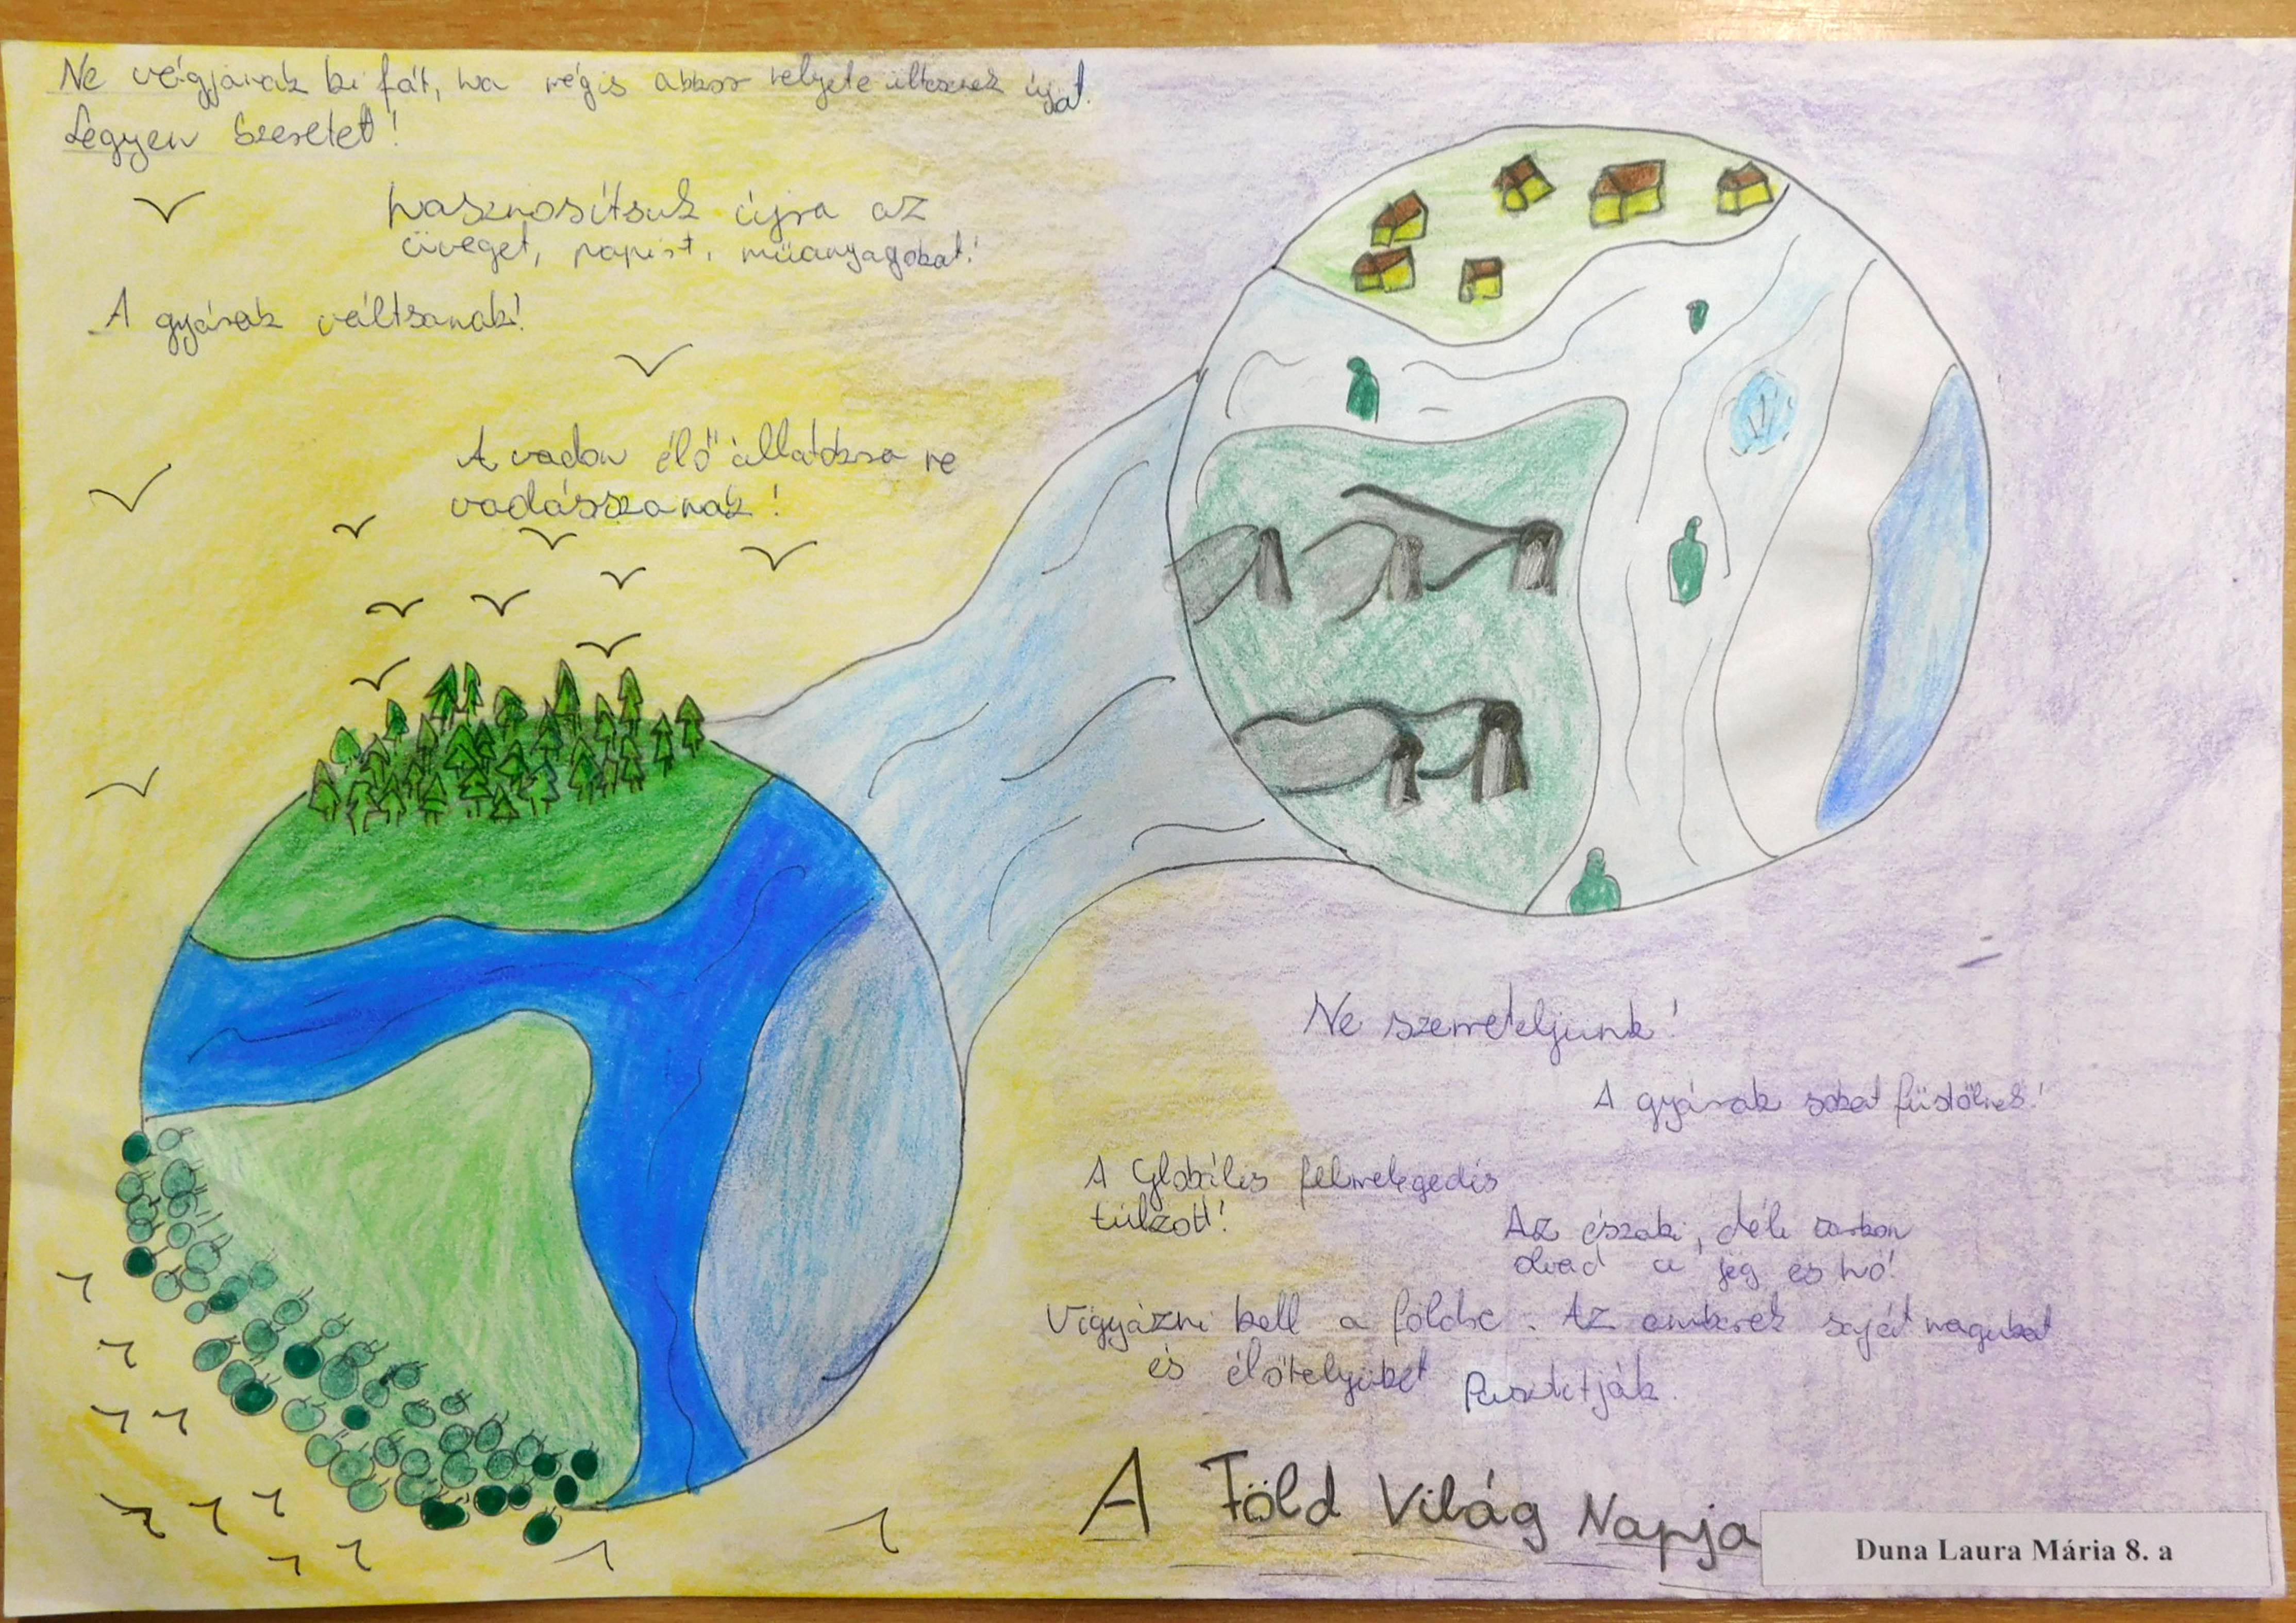 Ne vágjanak ki fát, ha mégis akkor helyete ültesenek újat.
Legyen Szeretet!
hasznosítsuk újra az
üveget, papírt, műanyagokat!
A gyárak váltsanak!
A vadon élő állatokra ne
vadásszanak!
Ne szemeteljünk!
A gyárak sokat füstölnek!
A Globális felmelegedés
túlzott!
Az északi, déli sarkon
olvad a jég és hó!
Vigyázni kell a földre. Az emberek saját magukat
és élőhelyüket Pusztítják.
A Föld Világ Napja
Duna Laura Mária 8. a